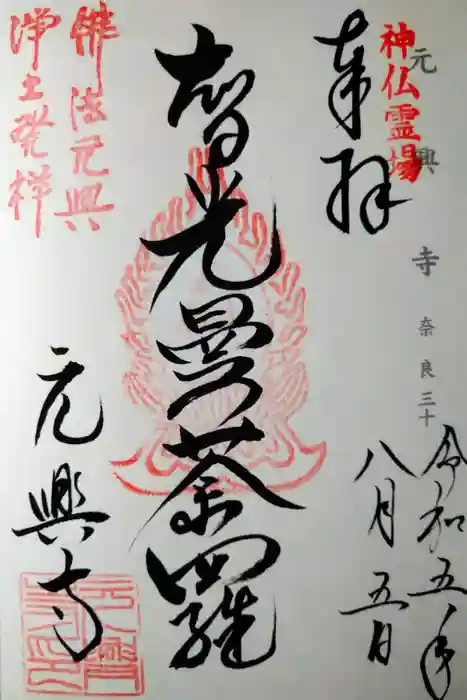 神仏霊場
元興寺 奈良三十
令和五年
八月五日
奉拝
智光曼荼羅
佛法元興
浄土発祥
元興寺